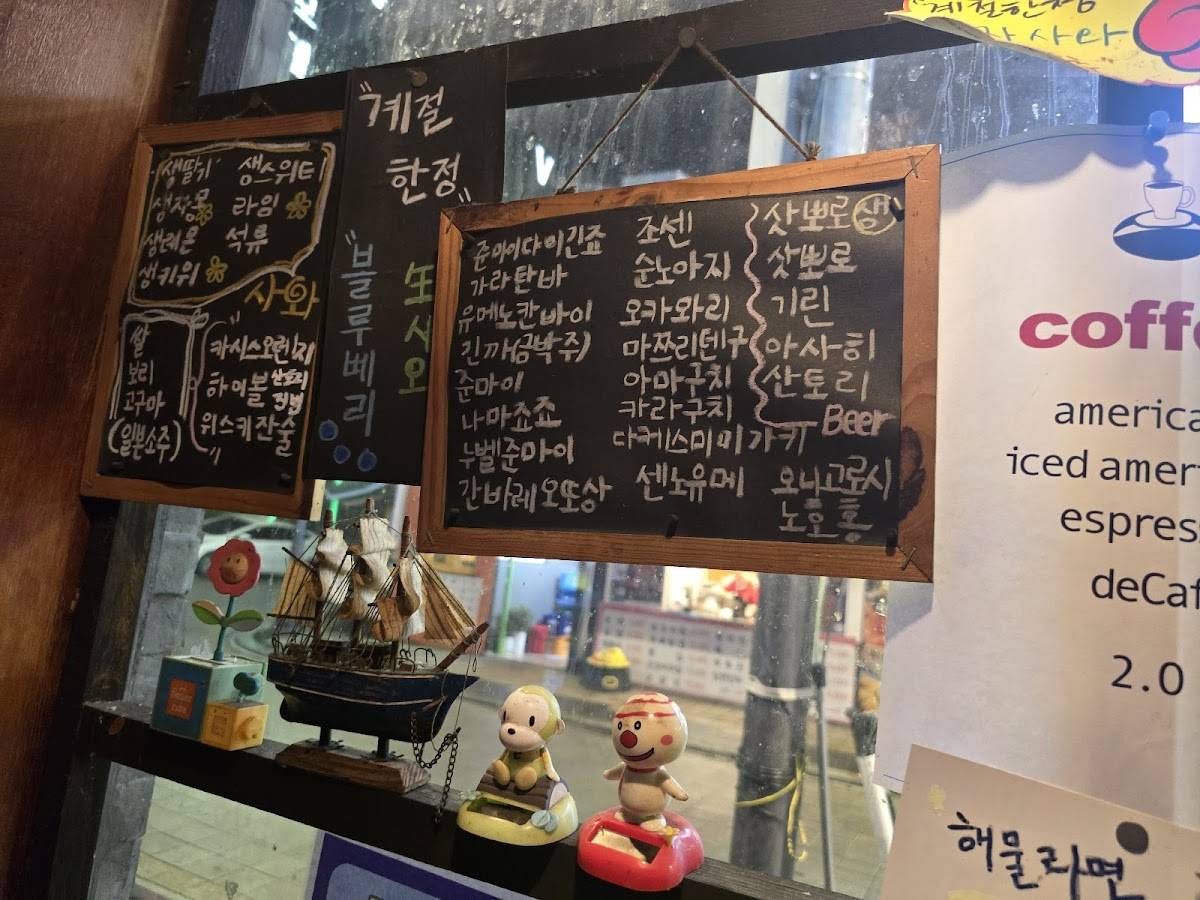 계절한정
사라
생딸기 생스위티
생자몽 라임
생레몬 석류
생키위
사와
쌀
보리
고구마
(일본소주)
"카시스오렌지
하이볼 산토리
위스키잔술"
"계절
한정"
"블루베리
生
준마이다이긴죠
가라탄바
유메노칸바이
긴까(금박주)
준마이
나마죠죠
누벨준마이
간바레오또상
조센
순노아지
오카와리
마쯔리텐구
아마구치
카라구치
다케스미미가키
센노유메
삿뽀로 생
삿뽀로
기린
아사히
산토리
Beer
오니고로시
노호홍
coff
america
iced amer
espres
deCaf
2.0
해물라면